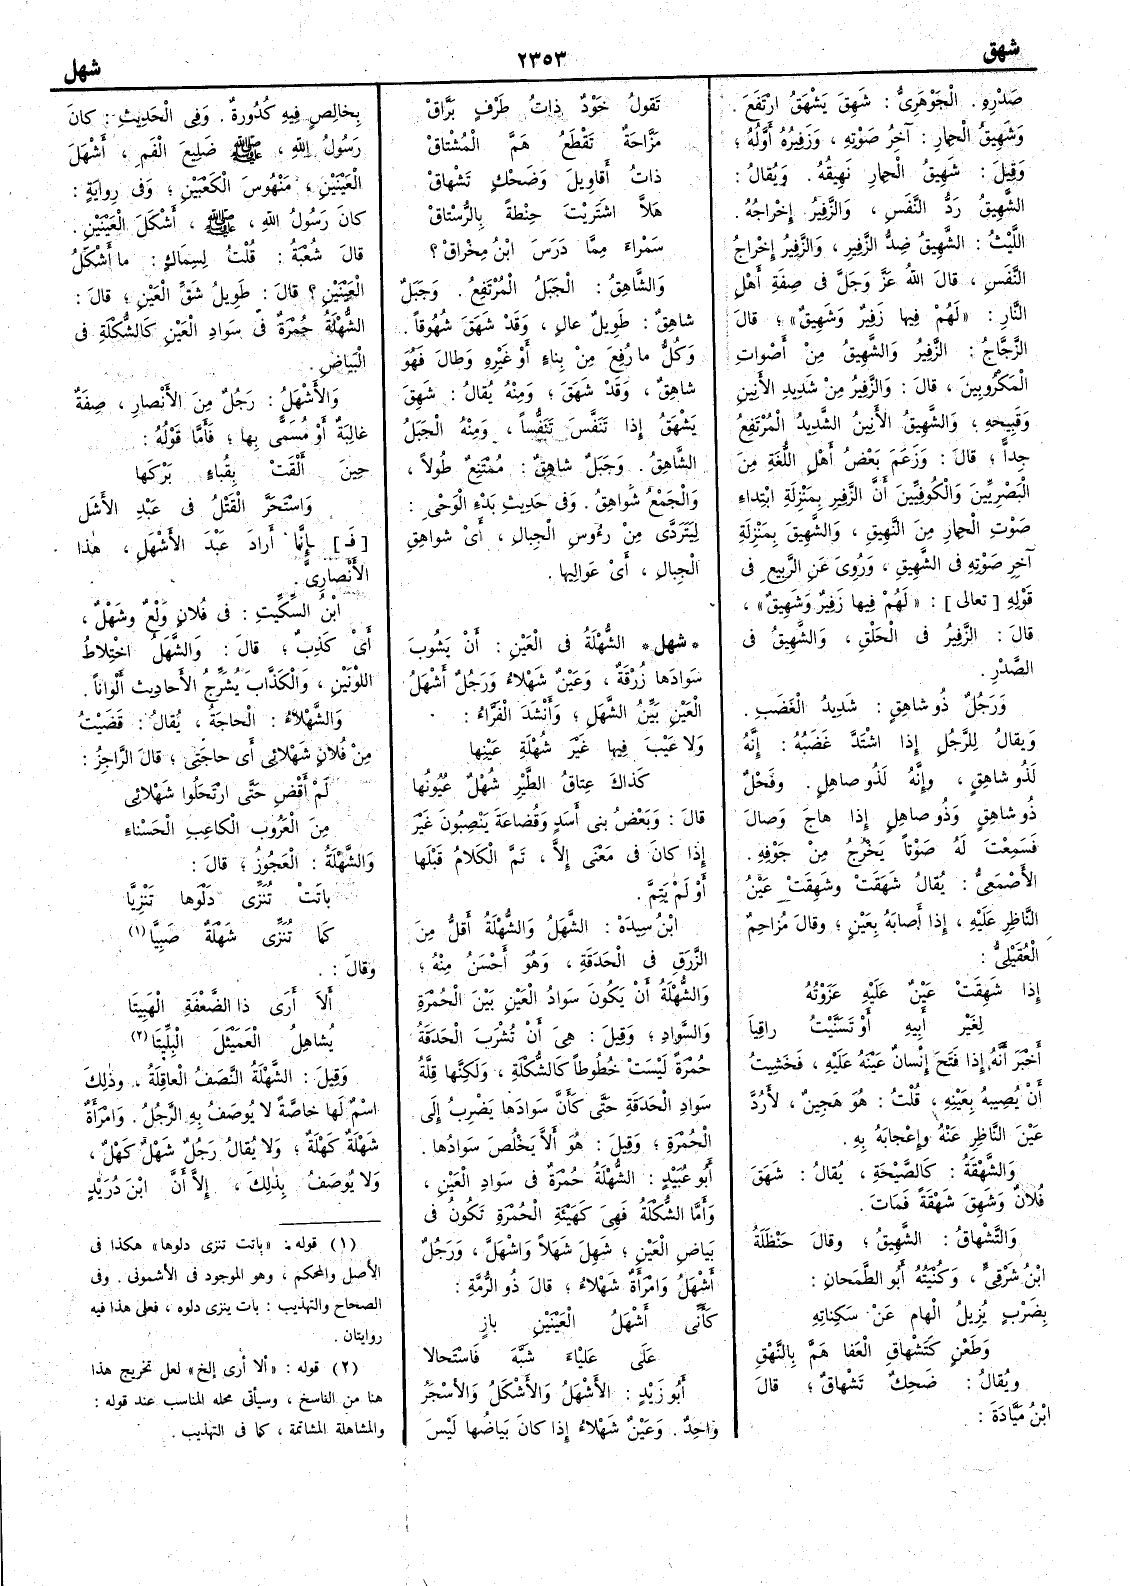 شهق
٢٣٥٣
شهل
صَدْرِهِ . الْجَوْهَرِىُّ : شَهِقَ يَشْهَقُ ارْتَفَعَ .
وَشَهِيقُ الْحِمارِ : آخِرُ صَوْتِهِ ، وَزَفِيرُهُ أَوَّلُهُ ؛
وَقِيلَ : شَهِيقُ الْحِمارِ نَهِيقُهُ . وَيُقالُ :
الشَّهِيقُ رَدُّ النَّفَسِ ، وَالزَّفِيرُ إِخْراجُهُ .
اللَّيْثُ : الشَّهِيقُ ضِدُّ الزَّفِيرِ ، وَالزَّفِيرُ إِخْراجُ
النَّفَسِ ، قالَ اللهُ عَزَّ وَجَلَّ فى صِفَةِ أَهْلِ
النَّارِ : «لَهُمْ فِيها زَفِيرٌ وَشَهِيقٌ» ؛ قالَ
الزَّجَّاجُ : الزَّفِيرُ وَالشَّهِيقُ مِنْ أَصْواتِ
الْمَكْرُوبِينَ ، قالَ : وَالزَّفِيرُ مِنْ شَدِيدِ الأَنِينِ
وَقَبِيحِهِ ، وَالشَّهِيقُ الأَنِينُ الشَّدِيدُ الْمُرْتَفِعُ
جِداً ؛ قالَ : وَزَعَمَ بَعْضُ أَهْلِ اللُّغَةِ مِنَ
الْبَصْرِيِّينَ وَالْكُوفِيِّينَ أَنَّ الزَّفِيرَ بِمَنْزِلَةِ ابْتِداءِ
صَوْتِ الْحِمارِ مِنَ النَّهِيقِ ، وَالشَّهِيقَ بِمَنْزِلَةِ
آخِرِ صَوْتِهِ فى الشَّهِيقِ ، وَرُوِىَ عَنِ الرَّبِيعِ فى
قَوْلِهِ [ تعالى ] : « لَهُمْ فِيها زَفِيرٌ وَشَهِيقٌ» ،
قالَ : الزَّفِيرُ فى الْحَلْقِ ، وَالشَّهِيقُ فى
الصَّدْرِ .
وَرَجُلٌ ذُو شاهِقٍ : شَدِيدُ الْغَضَبِ .
وَيقالُ لِلرَّجُلِ إِذا اشْتَدَّ غَضَبُهُ : إِنَّهُ
لَذُو شاهِقٍ ، وإِنَّهُ لَذُو صاهِلٍ . وفَحْلٌ
ذُو شاهِقٍ وَذُو صاهِلٍ إِذا هاجَ وَصالَ
فَسَمِعْتَ لَهُ صَوْتاً يَخْرُجُ مِنْ جَوْفِهِ .
الأَصْمَعِىُّ : يُقالُ شَهَقَتْ وشَهِقَتْ عَيْنُ
النَّاظِرِ عَلَيْهِ ، إِذا أَصابَهُ بِعَيْنٍ ؛ وقالَ مُزاحِمٌ
الْعُقَيْلِىُّ :
إِذا شَهِقَتْ عَيْنٌ عَلَيْهِ عَزَوْتُهُ
لِغَيْرِ أَبِيهِ أَوْ تَسَنَّيْتُ راقِيا
أَخْبَرَ أَنَّهُ إِذا فَتَحَ إِنْسانٌ عَيْنَهُ عَلَيْهِ ، فَخَشِيتُ
أَنْ يُصِيبَهُ بِعَيْنِهِ ، قُلْتُ : هُوَ هَجِينٌ ، لأَرُدَّ
عَيْنَ النَّاظِرِ عَنْهُ وإِعْجابَهُ بِهِ .
وَالشَّهْقَةُ : كَالصَّيْحَةِ ، يُقالُ : شَهَقَ
فُلانٌ وَشَهِقَ شَهْقَةً فَماتَ .
وَالتَّشْهاقُ : الشَّهِيقُ ؛ وقالَ حَنْظَلَةُ
ابْنُ شَرْقِىٍّ ، وَكُنْيَتُهُ أَبُو الطَّمَحانِ :
بِضَرْبٍ يُزِيلُ الْهامَ عَنْ سَكِناتِهِ
وَطَعْنٍ كَتَشْهاقِ الْعَفا هَمَّ بِالنَّهْقِ
ويُقالُ : ضَحِكٌ تَشْهاقٌ ؛ قالَ
ابْنُ مَيَّادَةَ :
تَقولُ خَوْدٌ ذاتُ طَرْفٍ بَرَّاقْ
مَزَّاحَةٌ تَقْطَعُ هَمَّ الْمُشْتاقْ
ذاتُ أَقاوِيلَ وَضَحْكٍ تَشْهاقْ
هَلاَّ اشْتَرَيْتَ حِنْطَةً بِالرُّسْتاقْ
سَمْراءَ مِمَّا دَرَسَ ابْنُ مِخْراقْ ؟
وَالشَّاهِقُ : الْجَبَلُ الْمُرْتَفِعُ . وَجَبَلٌ
شاهِقٌ : طَوِيلٌ عالٍ ، وَقَدْ شَهَقَ شُهُوقاً .
وَكُلُّ ما رُفِعَ مِنْ بِناءٍ أَوْ غَيْرِهِ وَطالَ فَهُوَ
شاهِقٌ ، وَقَدْ شَهَقَ ؛ وَمِنْهُ يُقالُ : شَهِقَ
يَشْهَقُ إِذا تَنَفَّسَ تَنَفُّساً ، وَمِنْهُ الْجَبَلُ
الشَّاهِقُ . وَجَبَلٌ شاهِقٌ : مُمْتَنِعٌ طُولاً ،
وَالْجَمْعُ شَواهِقُ . وَفى حَدِيثِ بَدْءِ الْوَحْىِ :
لِيَتَرَدَّى مِنْ رُءُوسِ الْجِبالِ ، أَىْ شَواهِقِ
الْجِبالِ ، أَىْ عَوالِيها .
• شهل • الشُّهْلَةُ فى الْعَيْنِ : أَنْ يَشُوبَ
سَوادَها زُرْقَةٌ ، وَعَيْنٌ شَهْلاءُ وَرَجُلٌ أَشْهَلُ
الْعَيْنِ بَيِّنُ الشَّهَلِ ؛ وَأَنْشَدَ الْفَرَّاءُ :
وَلا عَيْبَ فِيها غَيْرَ شُهْلَةِ عَيْنِها
كَذاكَ عِتاقُ الطَّيْرِ شُهْلٌ عُيُونُها
قالَ : وَبَعْضُ بَنى أَسَدٍ وَقُضاعَةَ يَنْصِبُونَ غَيْرَ
إِذا كانَ فى مَعْنَى إِلاَّ ، تَمَّ الْكَلامُ قَبْلَها
أَوْ لَمْ يَتِمَّ .
ابْنُ سِيدَهْ : الشَّهَلُ وَالشُّهْلَةُ أَقَلُّ مِنَ
الزَّرَقِ فى الْحَدَقَةِ ، وَهُوَ أَحْسَنُ مِنْهُ ؛
وَالشُّهْلَةُ أَنْ يَكُونَ سَوادُ الْعَيْنِ بَيْنَ الْحُمْرَةِ
وَالسَّوادِ ؛ وَقِيلَ : هِىَ أَنْ تُشْرَبَ الْحَدَقَةُ
حُمْرَةً لَيْسَتْ خُطُوطاً كَالشُّكْلَةِ ، وَلَكِنَّها قِلَّةُ
سَوادِ الْحَدَقَةِ حَتَّى كَأَنَّ سَوادَها يَضْرِبُ إِلَى
الْحُمْرَةِ ؛ وَقِيلَ : هُوَ أَلاَّ يَخْلُصَ سَوادُها .
أَبُو عُبَيْدٍ : الشُّهْلَةُ حُمْرَةٌ فى سَوادِ الْعَيْنِ ،
وَأَمَّا الشُّكْلَةُ فَهِىَ كَهَيْئَةِ الْحُمْرَةِ تَكُونُ فى
بَياضِ الْعَيْنِ ؛ شَهِلَ شَهَلاً وَاشْهَلَّ ، وَرَجُلٌ
أَشْهَلُ وَامْرَأَةٌ شَهْلاءُ ؛ قالَ ذُو الرُّمَّةِ :
كَأَنِّى أَشْهَلُ الْعَيْنَيْنِ بازٍ
عَلَى عَلْياءَ شَبَّهَ فَاسْتَحالا
أَبُو زَيْدٍ : الأَشْهَلُ وَالأَشْكَلُ وَالأَسْجَرُ
وَاحِدٌ . وَعَيْنٌ شَهْلاءُ إِذا كانَ بَياضُها لَيْسَ
بِخالِصٍ فِيهِ كُدُورَةٌ . وَفى الْحَدِيثِ : كانَ
رَسُولُ اللهِ ، ﷺ ضَلِيعَ الْفَمِ ، أَشْهَلَ
الْعَيْنَيْنِ ، مَنْهُوسَ الْكَعْبَيْنِ ؛ وَفى رِوايَةٍ :
كانَ رَسُولُ اللهِ ، ﷺ ، أَشْكَلَ الْعَيْنَيْنِ .
قالَ شُعْبَةُ : قُلْتُ لِسِماكٍ : ما أَشْكَلُ
الْعَيْنَيْنِ ؟ قالَ : طَوِيلُ شَقِّ الْعَيْنِ ؛ قالَ :
الشُّهْلَةُ حُمْرَةٌ فى سَوادِ الْعَيْنِ كَالشُّكْلَةِ فى
الْبَياضِ .
وَالأَشْهَلُ : رَجُلٌ مِنَ الأَنْصارِ ، صِفَةٌ
غالِبَةٌ أَوْ مُسَمًّى بِها ؛ فَأَمَّا قَوْلُهُ :
حِينَ أَلْقَتْ بِقُباءٍ بَرْكَها
وَاسْتَحَرَّ الْقَتْلُ فى عَبْدِ الأَشَلْ
[ فَـ ] إِنَّما أَرادَ عَبْدَ الأَشْهَلِ ، هٰذا
الأَنْصارِىَّ .
ابْنُ السِّكِّيتِ : فى فُلانٍ وَلْعٌ وشَهْلٌ ،
أَىْ كَذِبٌ ؛ قالَ : وَالشَّهَلُ اخْتِلاطُ
اللوْنَيْنِ ، وَالْكَذَّابُ يُشَرِّجُ الأَحادِيثَ أَلْواناً .
وَالشَّهْلاءُ : الْحاجَةُ ، يُقالُ : قَضَيْتُ
مِنْ فُلانٍ شَهْلائِى أَى حاجَتِى ؛ قالَ الرَّاجِزُ :
لَمْ أَقْضِ حَتَّى ارْتَحَلُوا شَهْلائِى
مِنَ الْعَرُوبِ الْكاعِبِ الْحَسْناءِ
وَالشَّهْلَةُ : الْعَجُوزُ ؛ قالَ :
باتَتْ تُنَزِّى دَلْوَها تَنْزِيَّا
كَما تُنَزِّى شَهْلَةٌ صَبِيَّا (١)
وَقالَ :
أَلا أَرَى ذا الضَّعْفَةِ الْهَبِيتا
يُشاهِلُ الْعَمَيْثَلَ الْبِلِّيتَا (٢)
وَقِيلَ : الشَّهْلَةُ النَّصَفُ الْعاقِلَةُ ، وذٰلِكَ
اسْمٌ لَها خاصَّةً لا يُوصَفُ بِهِ الرَّجُلُ . وَامْرَأَةٌ
شَهْلَةٌ كَهْلَةٌ ؛ وَلا يُقالُ رَجُلٌ شَهْلٌ كَهْلٌ ،
وَلا يُوصَفُ بِذٰلِكَ ، إِلاَّ أَنَّ ابْنَ دُرَيْدٍ
(١) قوله : «باتت تنزى دلوها» هكذا فى
الأصل والمحكم ، وهو الموجود فى الأشمونى . وفى
الصحاح والتهذيب : بات ينزى دلوه ، فعلى هذا فيه
روايتان .
(٢) قوله : «ألا أرى إلخ» لعل تخريج هذا
هنا من الناسخ ، وسيأتى محله المناسب عند قوله :
والمشاهلة المشاتمة ، كما فى التهذيب .